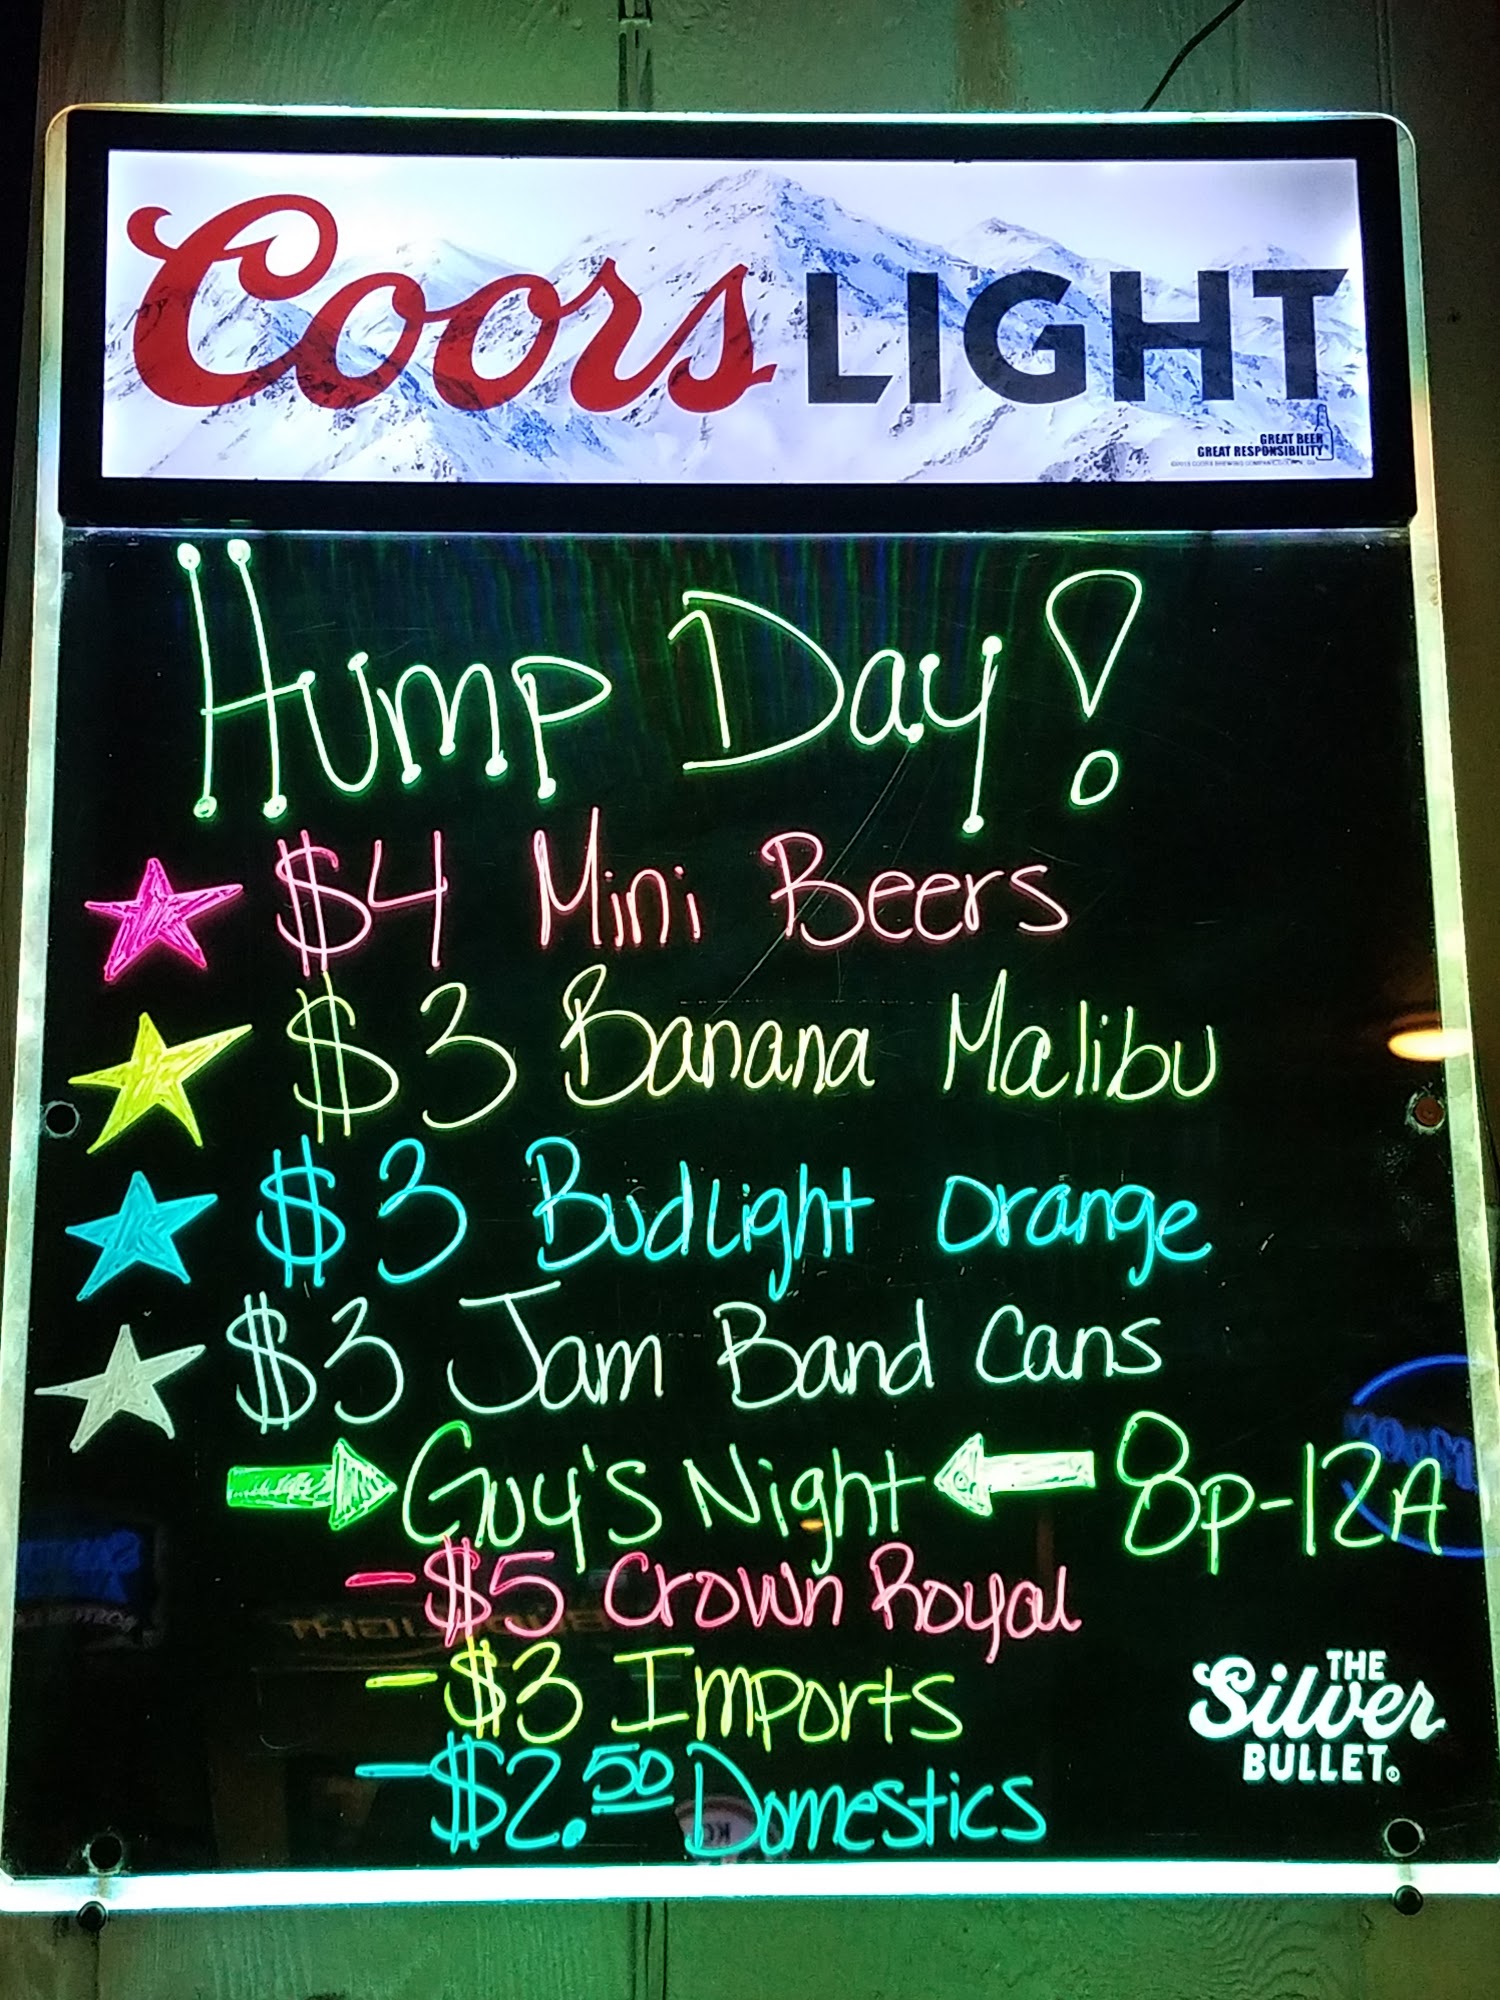 Coors LIGHT
GREAT BEER
GREAT RESPONSIBILITY
Hump Day!
$4 Mini Beers
$3 Banana Malibu
$3 Budlight orange
$3 Jam Band cans
Guy's Night 8p-12A
-$5 Crown Royal
-$3 Imports
-$2.50 Domestics
THE
Silver
BULLET®